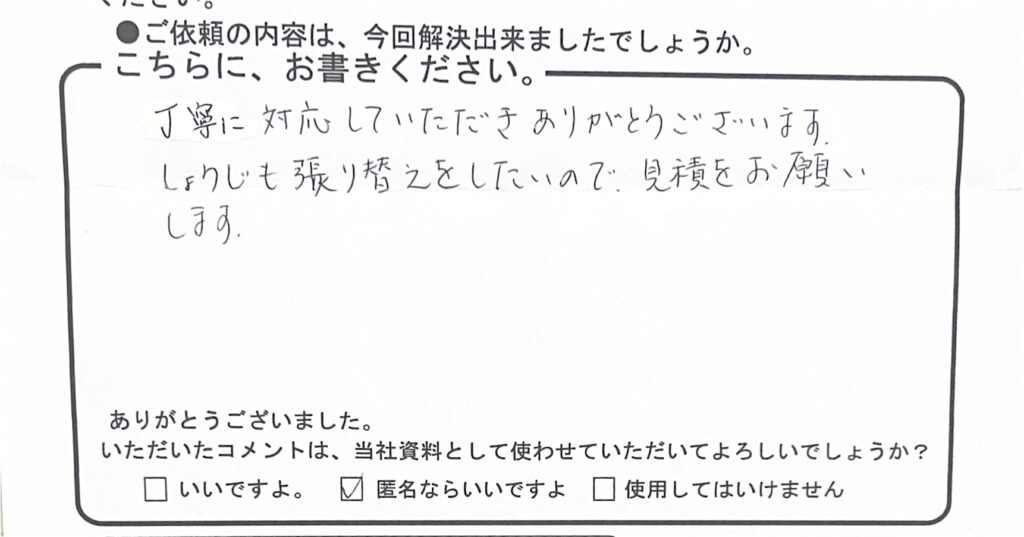 ください。
●ご依頼の内容は、今回解決出来ましたでしょうか。
こちらに、お書きください。
丁寧に対応していただきありがとうございます.
しょうじも張り替えをしたいので.見積をお願い
します.
ありがとうございました。
いただいたコメントは、当社資料として使わせていただいてよろしいでしょうか？
□ いいですよ。 ☑ 匿名ならいいですよ □ 使用してはいけません